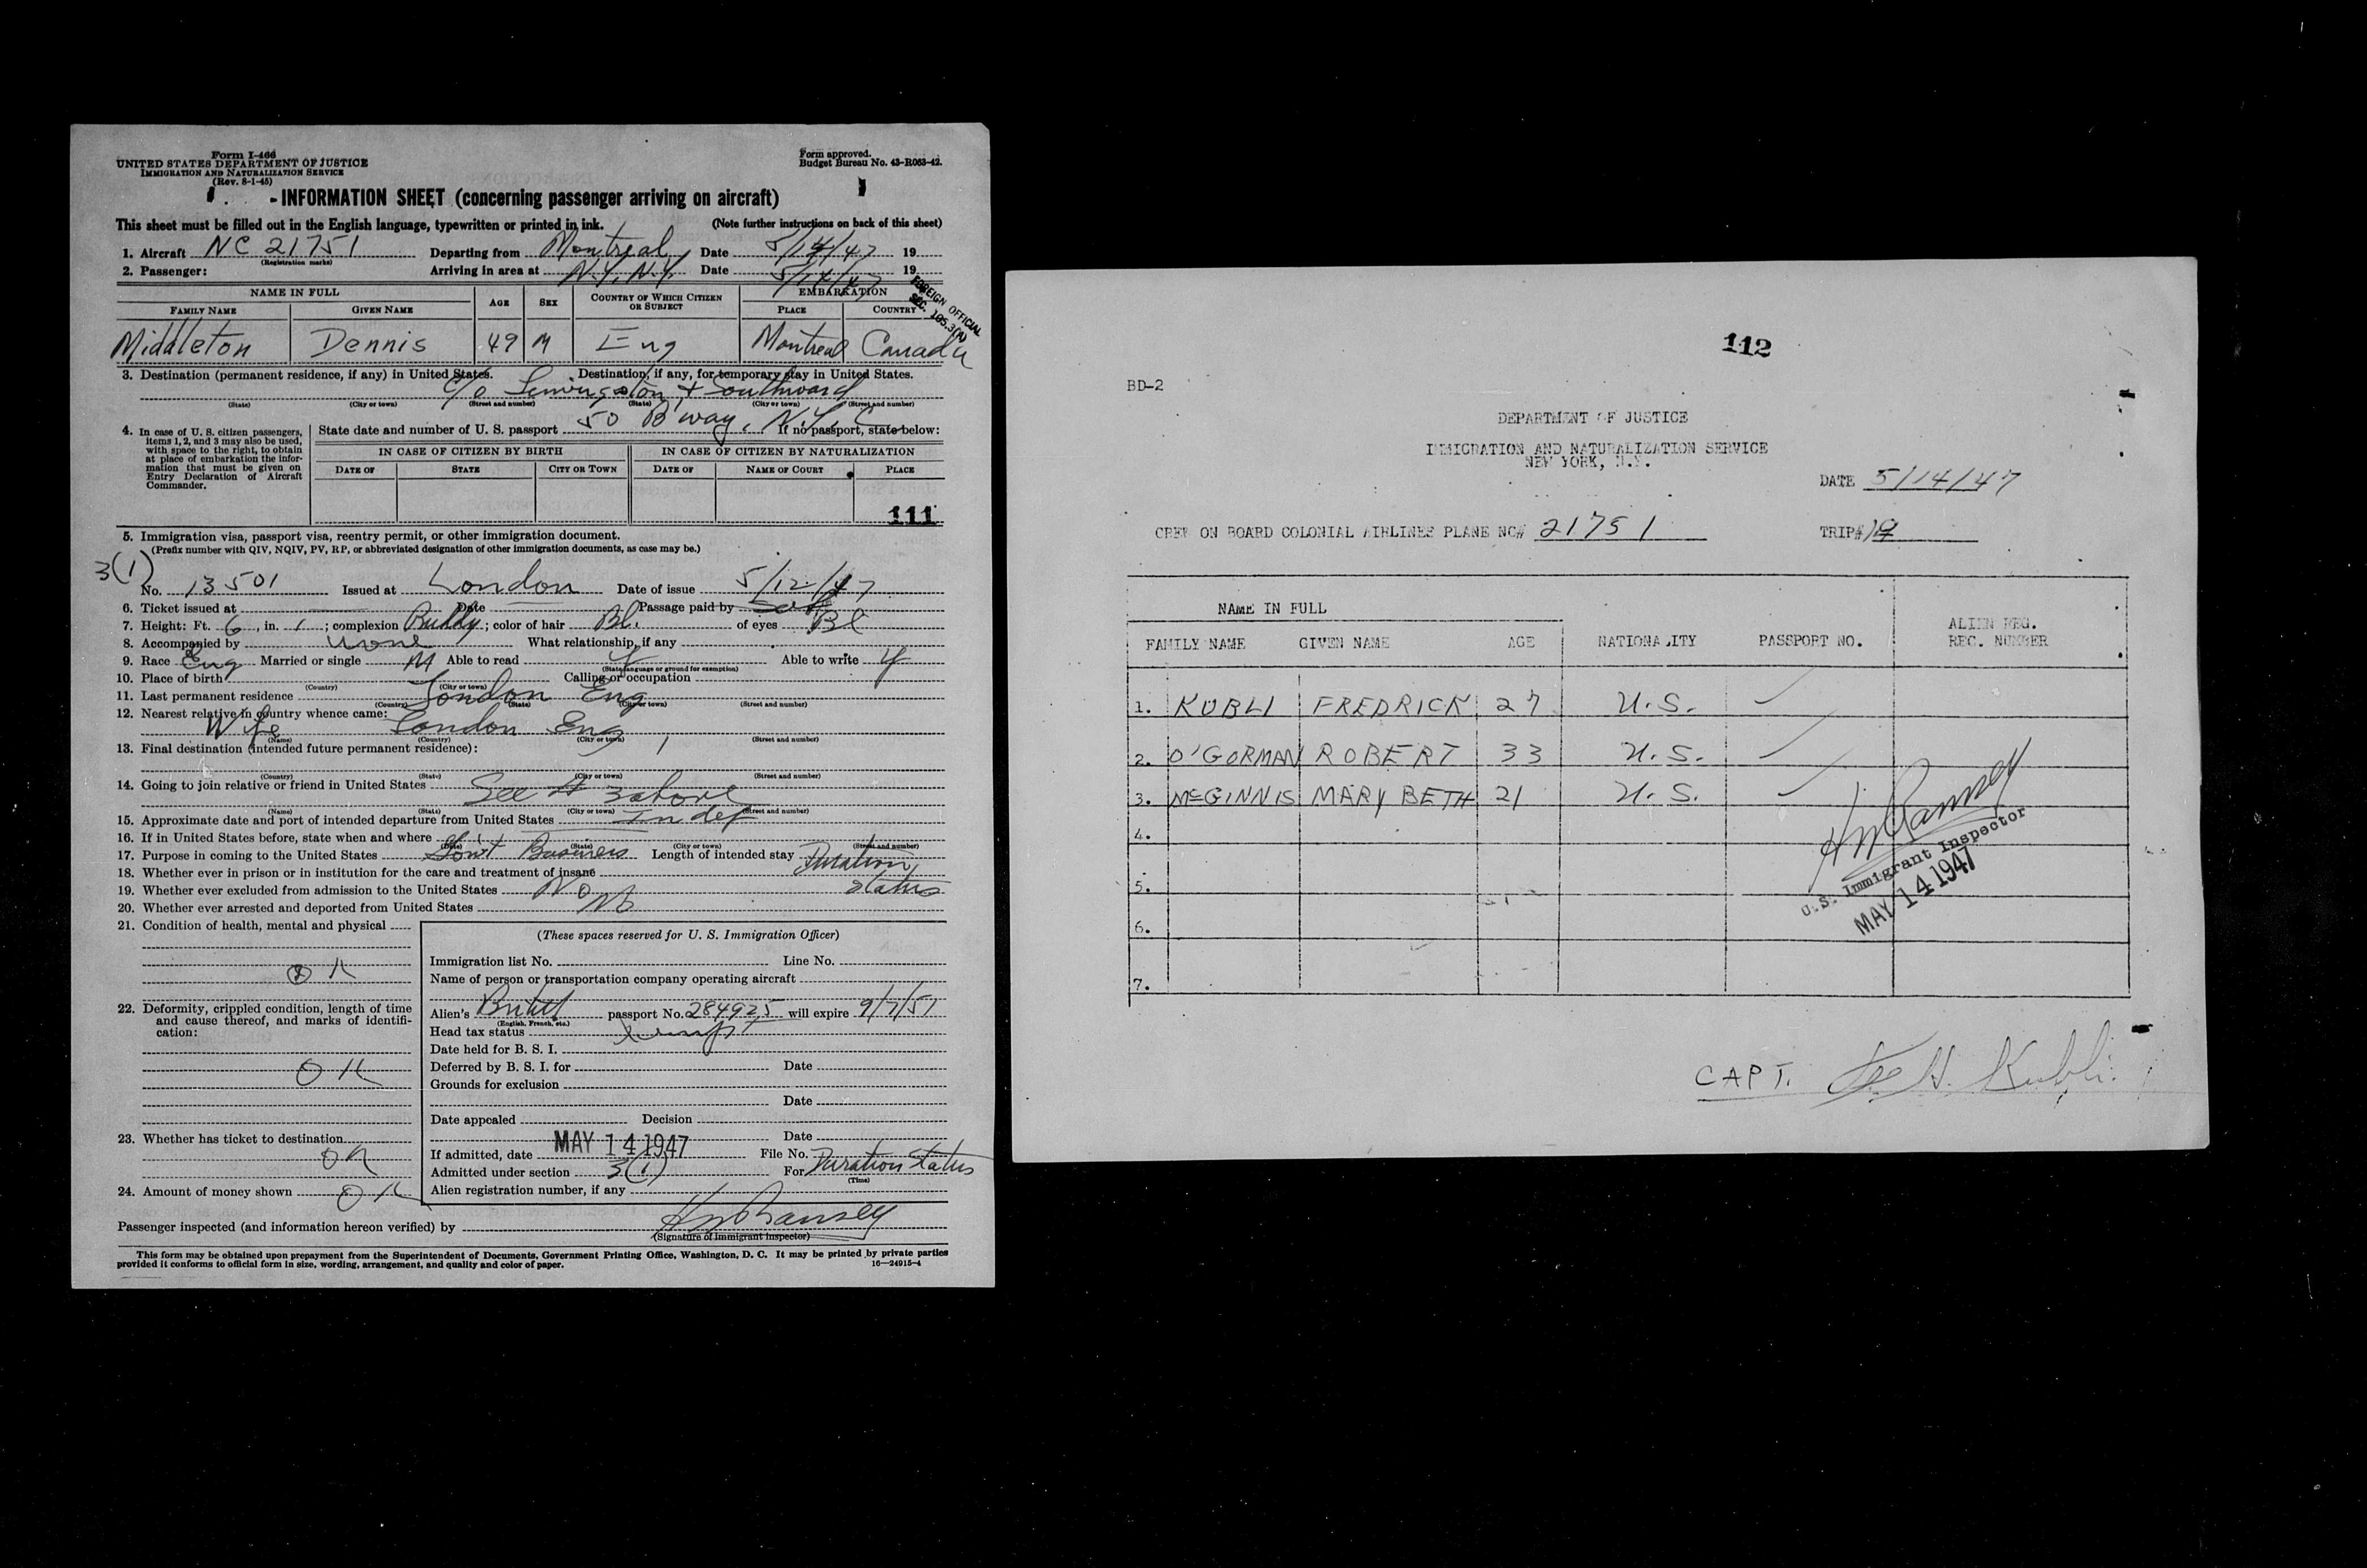 Form I-466
UNITED STATES DEPARTMENT OF JUSTICE
IMMIGRATION AND NATURALIZATION SERVICE
(Rev. 8-1-45)
Form approved.
Budget Bureau No. 43-R063-42.
INFORMATION SHEET (concerning passenger arriving on aircraft)
This sheet must be filled out in the English language, typewritten or printed in ink. (Note further instructions on back of this sheet)
1. Aircraft NC 21751 Departing from Montreal Date 5/14/47 19
(Registration marks)
2. Passenger: Arriving in area at N.Y. N.Y. Date 5/14/47 19
FOREIGN OFFICIAL
SEC. 105.3(A)
NAME IN FULL AGE SEX COUNTRY OF WHICH CITIZEN OR SUBJECT EMBARKATION
FAMILY NAME GIVEN NAME PLACE COUNTRY
Middleton Dennis 49 M Eng Montreal Canada
3. Destination (permanent residence, if any) in United States. Destination, if any, for temporary stay in United States.
c/o Livingston & Southward
(State) (City or town) (Street and number) (State) (City or town) (Street and number)
50 B'way, N.Y.C
4. In case of U. S. citizen passengers, items 1, 2, and 3 may also be used, with space to the right, to obtain at place of embarkation the information that must be given on Entry Declaration of Aircraft Commander.
State date and number of U. S. passport If no passport, state below:
IN CASE OF CITIZEN BY BIRTH IN CASE OF CITIZEN BY NATURALIZATION
DATE OF STATE CITY OR TOWN DATE OF NAME OF COURT PLACE
111
5. Immigration visa, passport visa, reentry permit, or other immigration document.
(Prefix number with QIV, NQIV, PV, RP, or abbreviated designation of other immigration documents, as case may be.)
3(1)
No. 13501 Issued at London Date of issue 5/12/47
6. Ticket issued at Date Passage paid by Self
7. Height: Ft. 6, in. 1; complexion Ruddy; color of hair Bl. of eyes Bl
8. Accompanied by none What relationship, if any
9. Race Eng Married or single M Able to read Y Able to write Y
(State language or ground for exemption)
10. Place of birth Calling or occupation
(Country) (City or town)
11. Last permanent residence London Eng
(Country) (State) (City or town) (Street and number)
12. Nearest relative in country whence came:
Wife London Eng
(Name) (Country) (City or town) (Street and number)
13. Final destination (intended future permanent residence):
(Country) (State) (City or town) (Street and number)
14. Going to join relative or friend in United States See # 3 above
(Name) (State) (City or town) (Street and number)
15. Approximate date and port of intended departure from United States Indef
16. If in United States before, state when and where
(Date) (State) (City or town) (Street and number)
17. Purpose in coming to the United States Gov't Business Length of intended stay Duration Status
18. Whether ever in prison or in institution for the care and treatment of insane
19. Whether ever excluded from admission to the United States No
20. Whether ever arrested and deported from United States No
21. Condition of health, mental and physical
OK
22. Deformity, crippled condition, length of time and cause thereof, and marks of identification:
OK
23. Whether has ticket to destination
OK
24. Amount of money shown OK
(These spaces reserved for U. S. Immigration Officer)
Immigration list No. Line No.
Name of person or transportation company operating aircraft
Alien's British passport No. 284925 will expire 9/7/51
(English, French, etc.)
Head tax status exempt
Date held for B. S. I.
Deferred by B. S. I. for Date
Grounds for exclusion
Date
Date appealed Decision
Date
If admitted, date MAY 14 1947 File No.
Admitted under section 3(1) For Duration Status
(Time)
Alien registration number, if any
Passenger inspected (and information hereon verified) by HW Ramsey
(Signature of immigrant inspector)
This form may be obtained upon prepayment from the Superintendent of Documents, Government Printing Office, Washington, D. C. It may be printed by private parties
provided it conforms to official form in size, wording, arrangement, and quality and color of paper. 16—24915-4
112
BD-2
DEPARTMENT OF JUSTICE
IMMIGRATION AND NATURALIZATION SERVICE
NEW YORK, N.Y.
DATE 5/14/47
CREW ON BOARD COLONIAL AIRLINES PLANE NC# 21751 TRIP# 19
NAME IN FULL
FAMILY NAME GIVEN NAME AGE NATIONALITY PASSPORT NO. ALIEN REG. REG. NUMBER
1. KUBLI FREDRICK 27 U.S.
2. O'GORMAN ROBERT 33 U.S.
3. McGINNIS MARY BETH 21 U.S.
4.
5.
6.
7.
HW Ramsey
U.S. Immigrant Inspector
MAY 14 1947
CAPT. F. H. Kubli